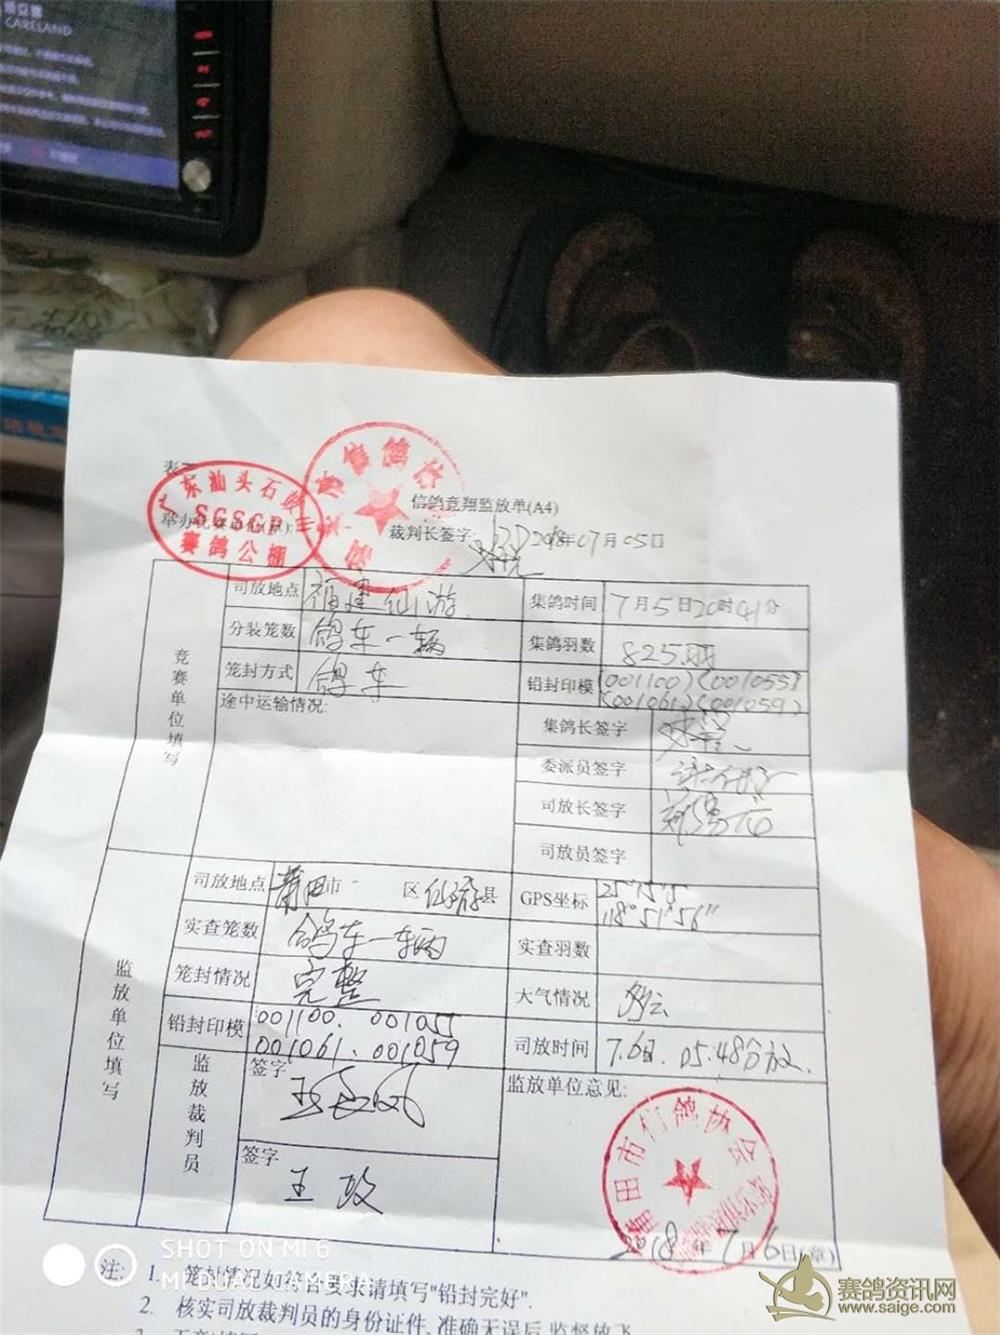 CARELAND
广东汕头石
SGSGP
赛鸽公棚
信鸽
信鸽竞翔监放单(A4)
裁判长签字: 2018年07月05日
竞赛单位填写
司放地点 福建仙游 集鸽时间 7月5日20时41分
分装笼数 鸽车一辆 集鸽羽数 825羽
笼封方式 鸽车 铅封印模 (001100)(001055)
(001061)(001059)
途中运输情况:
集鸽长签字
委派员签字
司放长签字
司放员签字
监放单位填写
司放地点 莆田市 区仙游县 GPS坐标 25°15′5″
118°51′56″
实查笼数 鸽车一辆 实查羽数
笼封情况 完整 大气情况 多云
铅封印模 001100. 001055
001061. 001059
司放时间 7.6日. 05:48分放.
监放裁判员
签字
签字 王政
监放单位意见:
莆田市信鸽协会
2018年7月6日(章)
注: 1. 笼封情况如符合要求请填写"铅封完好".
2. 核实司放裁判员的身份证件, 准确无误后,监督放飞
SHOT ON MI 6
MI DUAL CAMERA
赛鸽资讯网
www.saige.com